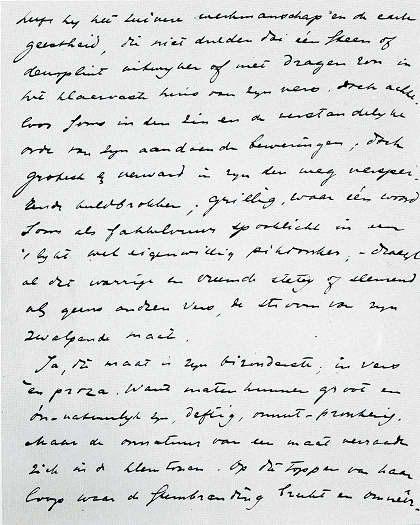 hij het zuivere werkmanschap en de echte
geestheid, die niet dulden dat één steen of
deursplint uitwijke of niet dragen zou in
het klaervaste huis van zijn vers. Doch achte-
loos soms in den zin en de verstandelijke
orde van zijn aandoende beweringen; doch
grotesk & verward in zijn den weg versper-
rende buldbrokken; grillig, waar één woord
soms als fakkelvuur spooklicht in een
'lijkt wel eigenwillig pikdonker, – draagt
al dit warrige en vreemde statig of slierend
als geen andere vers, de stroom van zijn
zwalpende maat.
Ja, die maat is zijn bizonderste, in vers
en proza. Want maten kunnen groot en
on-natuurlijk zijn, deftig, onnut-pronkerig.
Maar de onnatuur van een maat verraadt
zich in de kleine toonen. Op die toppen van haar
loop waar de stembranding bruist en omneer-